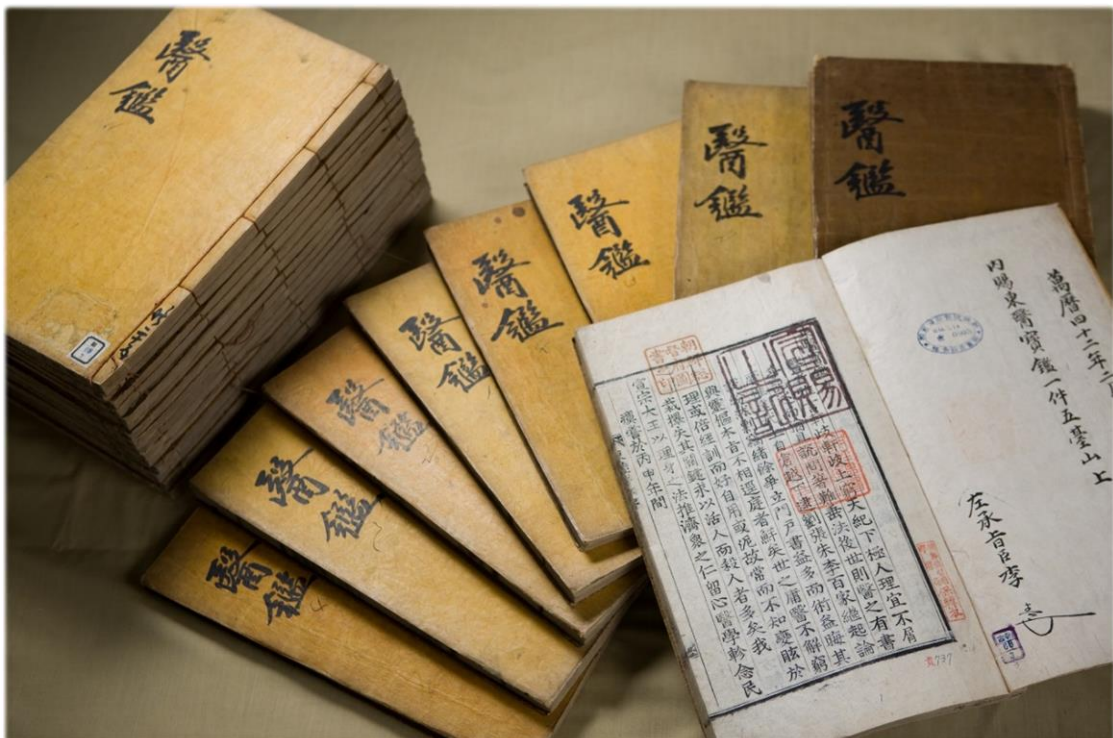 醫鑑
醫鑑
醫鑑
醫鑑
醫鑑
醫鑑
醫鑑
醫鑑
醫鑑
萬曆四十二年二
內賜東醫寶鑑一件五臺山上
左承旨臣李
岐軒岐上窮天紀下極人理宜不屑
說問著難垂法後世則醫之有書
自倉越下逮劉張朱李百家繼起論
緖餘爭立門戶書益多而術益晦其
與靈樞本旨不相逕庭者鮮矣世之庸醫不解窮
理或倍經訓而好自用或泥故常而不知變眩於
裁擇失其關鍵求以活人而殺人者多矣我
宣宗大王以理身之法推濟衆之仁留心醫學軫念民
瘼嘗於丙申年間
宣賜之記
朝鮮總督府圖書之印
737